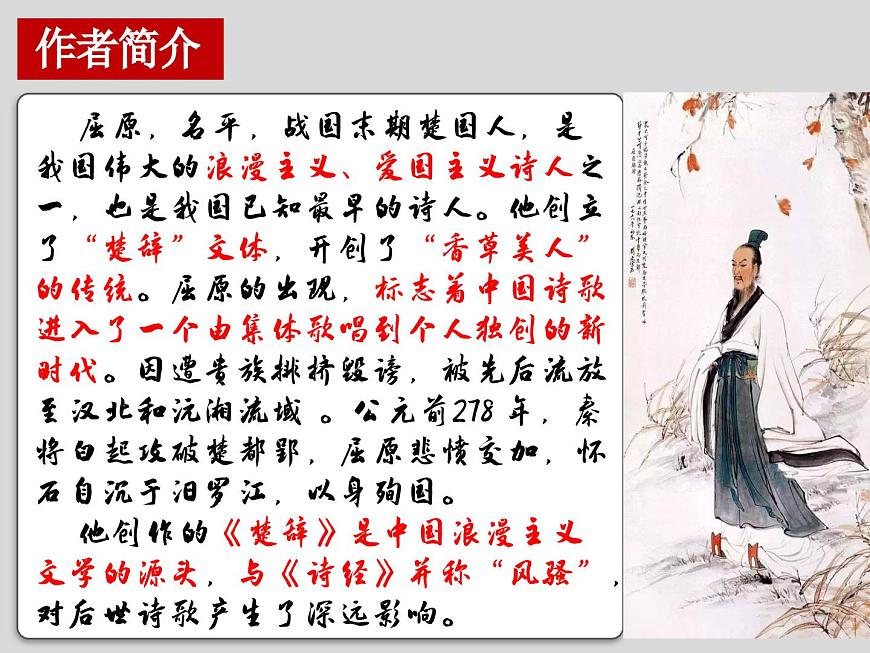 作者简介
屈原，名平，战国末期楚国人，是
我国伟大的浪漫主义、爱国主义诗人之
一，也是我国已知最早的诗人。他创立
了“楚辞”文体，开创了“香草美人”
的传统。屈原的出现，标志着中国诗歌
进入了一个由集体歌唱到个人独创的新
时代。因遭贵族排挤毁谤，被先后流放
至汉北和沅湘流域 。公元前278 年，秦
将白起攻破楚都郢，屈原悲愤交加，怀
石自沉于汨罗江，以身殉国。
他创作的《楚辞》是中国浪漫主义
文学的源头，与《诗经》并称“风骚”，
对后世诗歌产生了深远影响。